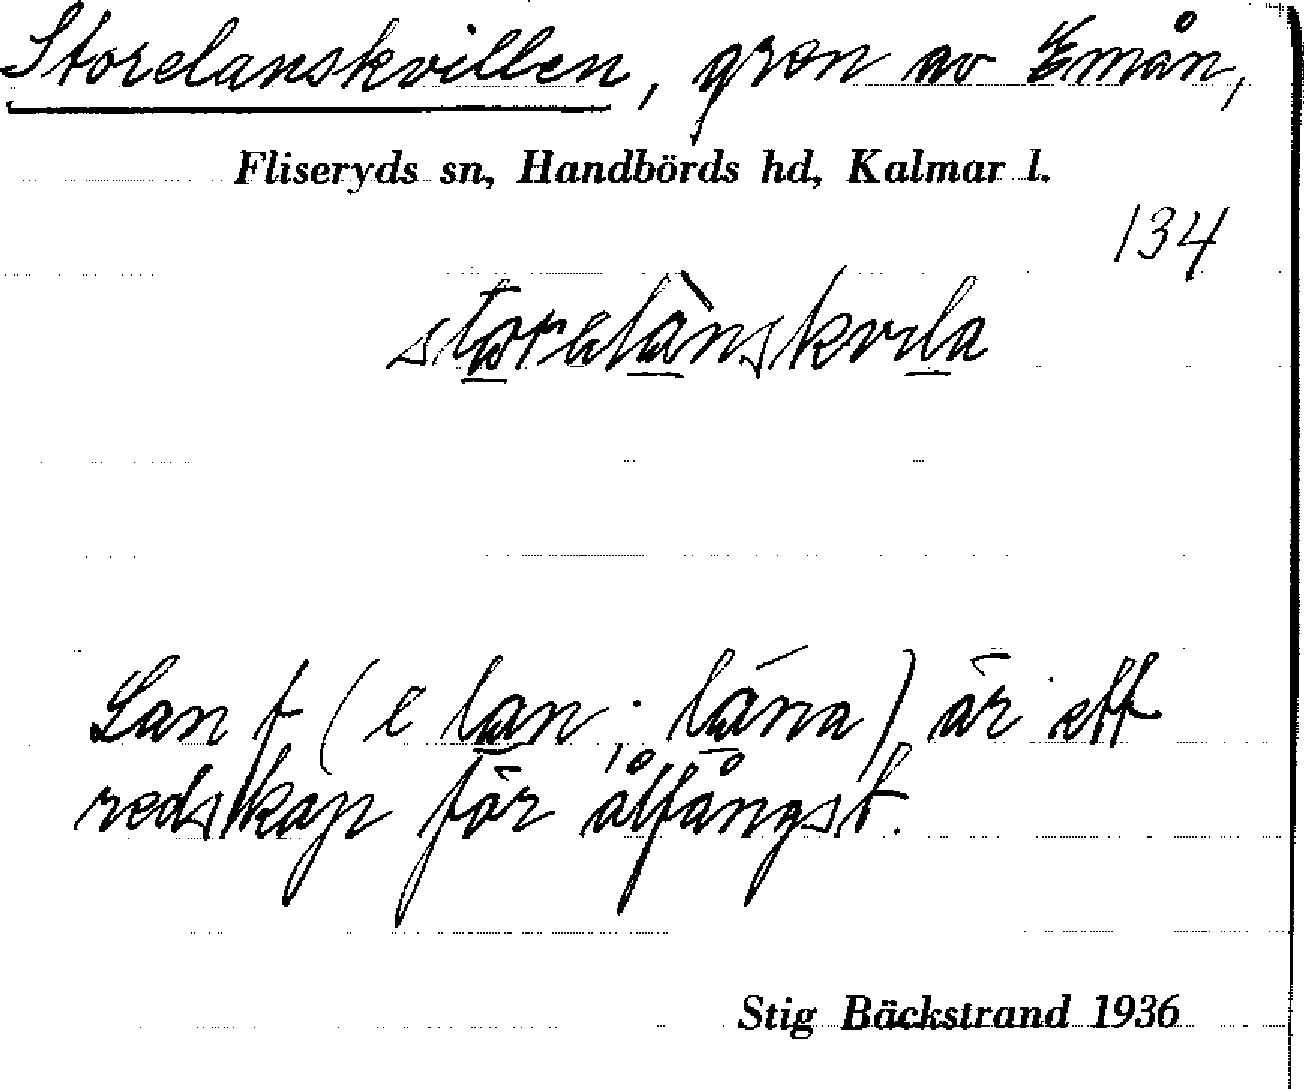 Storelanskvillen, gren av Emån,
Fliseryds sn, Handbörds hd, Kalmar l.
134
storelànskvila
Lan f (e lan; lána) är ett
redskap för ålfångst.
Stig Bäckstrand 1936